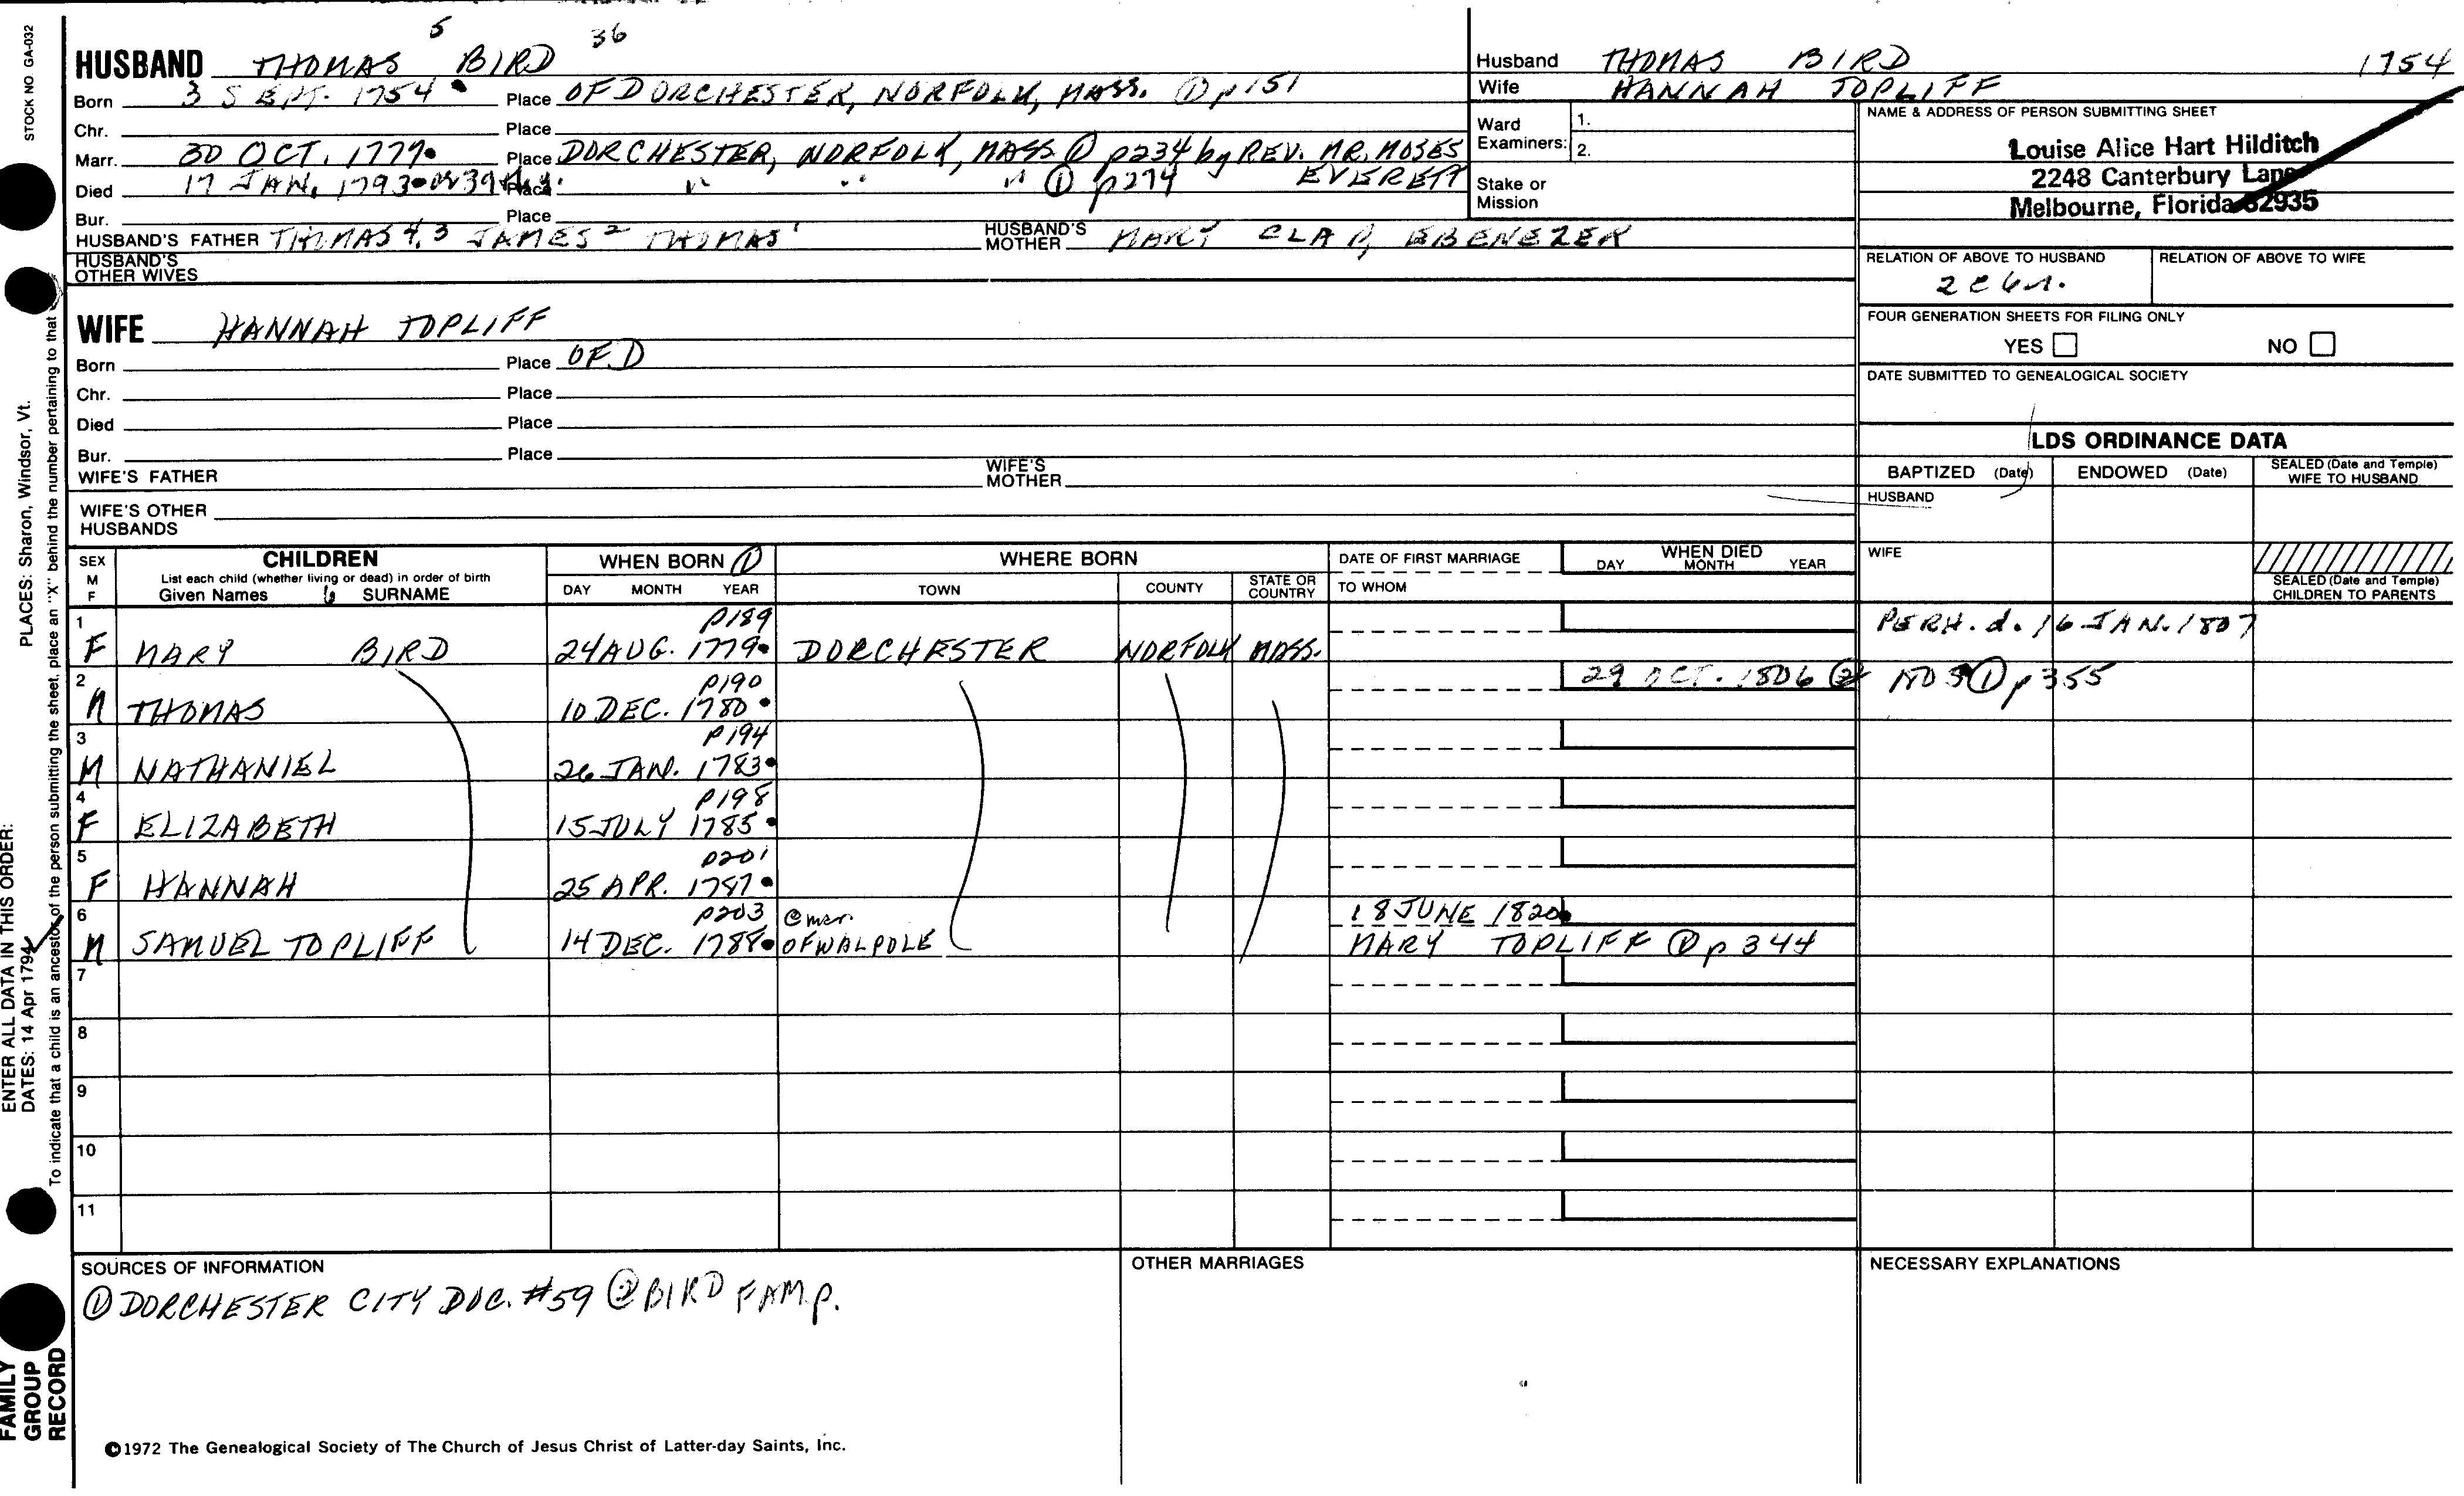 STOCK NO GA-032
5 36
HUSBAND THOMAS BIRD
Born 3 SEPT. 1754 Place OF DORCHESTER, NORFOLK, MASS. ① p151
Chr. Place
Marr. 30 OCT. 1777 Place DORCHESTER, NORFOLK, MASS ① p234 by REV. MR. MOSES EVERETT
Died 17 JAN. 1793 or 39 Place " " " ① p274
Bur. Place
HUSBAND'S FATHER THOMAS 4,3 JAMES 2 THOMAS 1 HUSBAND'S MOTHER MARY CLAP, EBENEZER
HUSBAND'S OTHER WIVES
WIFE HANNAH TOPLIFF
Born Place OF D
Chr. Place
Died Place
Bur. Place
WIFE'S FATHER WIFE'S MOTHER
WIFE'S OTHER HUSBANDS
Husband THOMAS BIRD 1754
Wife HANNAH TOPLIFF
Ward Examiners: 1. 2.
Stake or Mission
NAME & ADDRESS OF PERSON SUBMITTING SHEET
Louise Alice Hart Hilditch
2248 Canterbury Lane
Melbourne, Florida 32935
RELATION OF ABOVE TO HUSBAND RELATION OF ABOVE TO WIFE
2 C 6 r.
FOUR GENERATION SHEETS FOR FILING ONLY
YES NO
DATE SUBMITTED TO GENEALOGICAL SOCIETY
LDS ORDINANCE DATA
BAPTIZED (Date) ENDOWED (Date) SEALED (Date and Temple) WIFE TO HUSBAND
HUSBAND
WIFE
SEALED (Date and Temple) CHILDREN TO PARENTS
SEX M F CHILDREN List each child (whether living or dead) in order of birth Given Names 6 SURNAME
WHEN BORN ① DAY MONTH YEAR
WHERE BORN TOWN COUNTY STATE OR COUNTRY
DATE OF FIRST MARRIAGE TO WHOM
WHEN DIED DAY MONTH YEAR
1 F MARY BIRD p189 24 AUG. 1779 DORCHESTER NORFOLK MASS. PERH. d. 16 JAN. 1807
2 M THOMAS p190 10 DEC. 1780 29 OCT. 1806 ② NOS ① p355
3 M NATHANIEL p194 26 JAN. 1783
4 F ELIZABETH p198 15 JULY 1785
5 F HANNAH p201 25 APR. 1787
6 M SAMUEL TOPLIFF p203 14 DEC. 1788 @ mar. OF WALPOLE 18 JUNE 1820 MARY TOPLIFF ① p344
7
8
9
10
11
SOURCES OF INFORMATION
① DORCHESTER CITY DOC. #59 ② BIRD FAM p.
OTHER MARRIAGES
NECESSARY EXPLANATIONS
©1972 The Genealogical Society of The Church of Jesus Christ of Latter-day Saints, Inc.
ENTER ALL DATA IN THIS ORDER: PLACES: Sharon, Windsor, Vt.
DATES: 14 Apr 1794
To indicate that a child is an ancestor of the person submitting the sheet, place an "X" behind the number pertaining to that
FAMILY GROUP RECORD